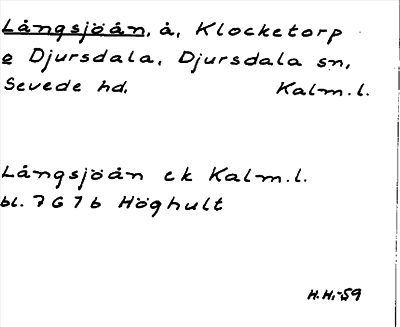 Långsjöån, å, Klocketorp
e Djursdala, Djursdala sn,
Sevede hd. Kalm.l.
Långsjöån ek Kalm.l.
bl. 7 G 7 b Höghult
H.H.-59